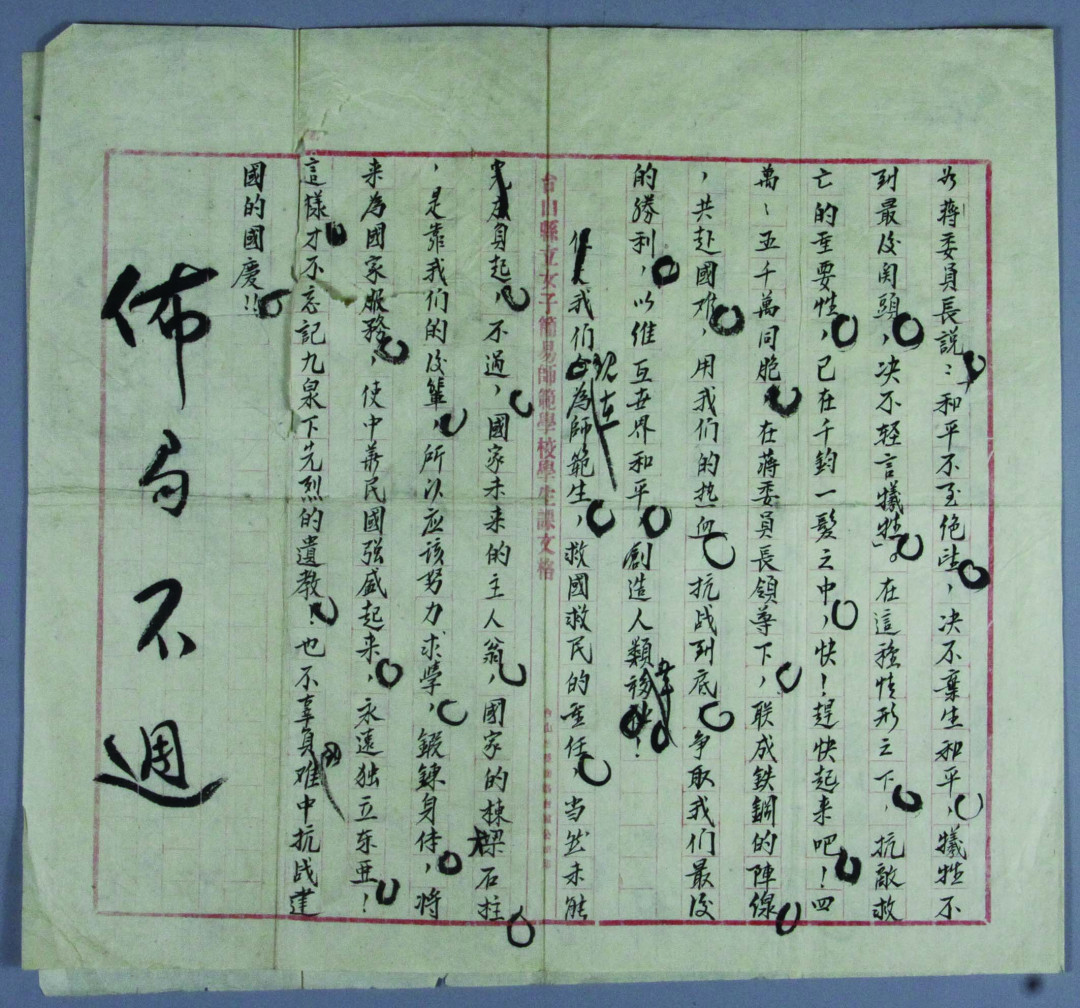 蔣委員長説：「和平不至絶望，决不棄生和平，犧牲不
到最后関頭，决不轻言犧牲」。在這種情形之下，抗敵救
亡的重要性，已在千鈞一髮之中，快！趕快起来吧！四
萬〻五千萬同胞，在蔣委員長領導下，联成鉄鋼的陣線
，共赴國难，用我们的热血，抗战到底，争取我们最後
的勝利，以维互世界和平，創造人類！
我们為師範生，现在救國救民的重任，当然未能
身起，不過，國家未来的主人翁，國家的棟梁石柱
，是靠我们的後輩，所以应该努力求學，鍛鍊身体，将
来為國家服務，使中華民國强盛起来，永遠独立东亜！
這樣才不忘記九泉下先烈的遺教！也不辜負难中抗战建
國的國慶!!
佈局不週
台山縣立女子簡易師範學校學生課文格